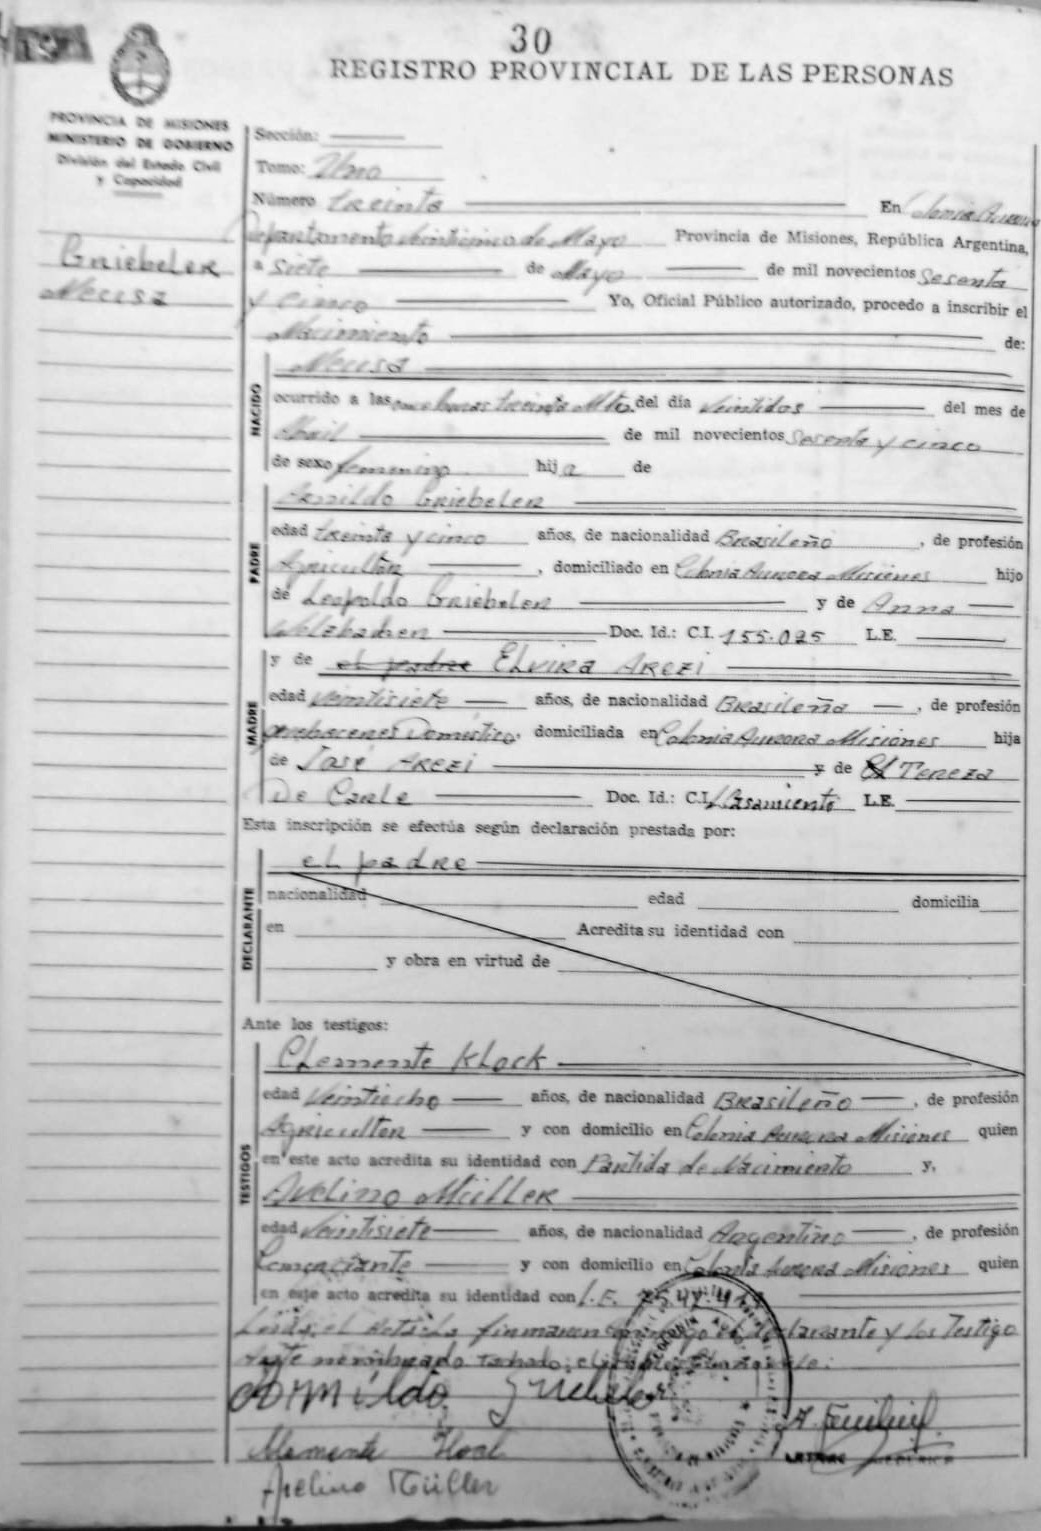 30
REGISTRO PROVINCIAL DE LAS PERSONAS
PROVINCIA DE MISIONES
MINISTERIO DE GOBIERNO
División del Estado Civil
y Capacidad
Griebeler
Neusa
Sección:
Tomo: Uno
Número treinta En Colonia Aurora
Departamento Veinticinco de Mayo Provincia de Misiones, República Argentina,
a siete de Mayo de mil novecientos sesenta
y cinco Yo, Oficial Público autorizado, procedo a inscribir el
Nacimiento de:
NACIDO
Neusa
ocurrido a las once horas treinta Mtos. del día veintidos del mes de
Abril de mil novecientos sesenta y cinco
de sexo femenino hija de
PADRE
Armildo Griebeler
edad treinta y cinco años, de nacionalidad Brasileño, de profesión
Agricultor, domiciliado en Colonia Aurora Misiones hijo
de Leopoldo Griebeler y de Anna
Doc. Id.: C.I. 155.025 L.E.
MADRE
y de el padre ELvira Arezi
edad veintisiete años, de nacionalidad Brasileña, de profesión
quehaceres Domestico, domiciliada en Colonia Aurora Misiones hija
de José Arezi y de Tereza
De Carle Doc. Id.: C.I. L.Casamiento L.E.
Esta inscripción se efectúa según declaración prestada por:
DECLARANTE
el padre
nacionalidad edad domicilia
en Acredita su identidad con
y obra en virtud de
Ante los testigos:
TESTIGOS
Clemente Klock
edad veintiocho años, de nacionalidad Brasileño, de profesión
Agricultor y con domicilio en Colonia Aurora Misiones quien
en este acto acredita su identidad con Partida de Nacimiento y,
Avelino Müller
edad veintisiete años, de nacionalidad Argentino, de profesión
Comerciante y con domicilio en Colonia Aurora Misiones quien
en este acto acredita su identidad con L.E.
Leida el Acta La firmaron conmigo el declarante y los Testigo
Armildo Griebeler
Avelino Müller